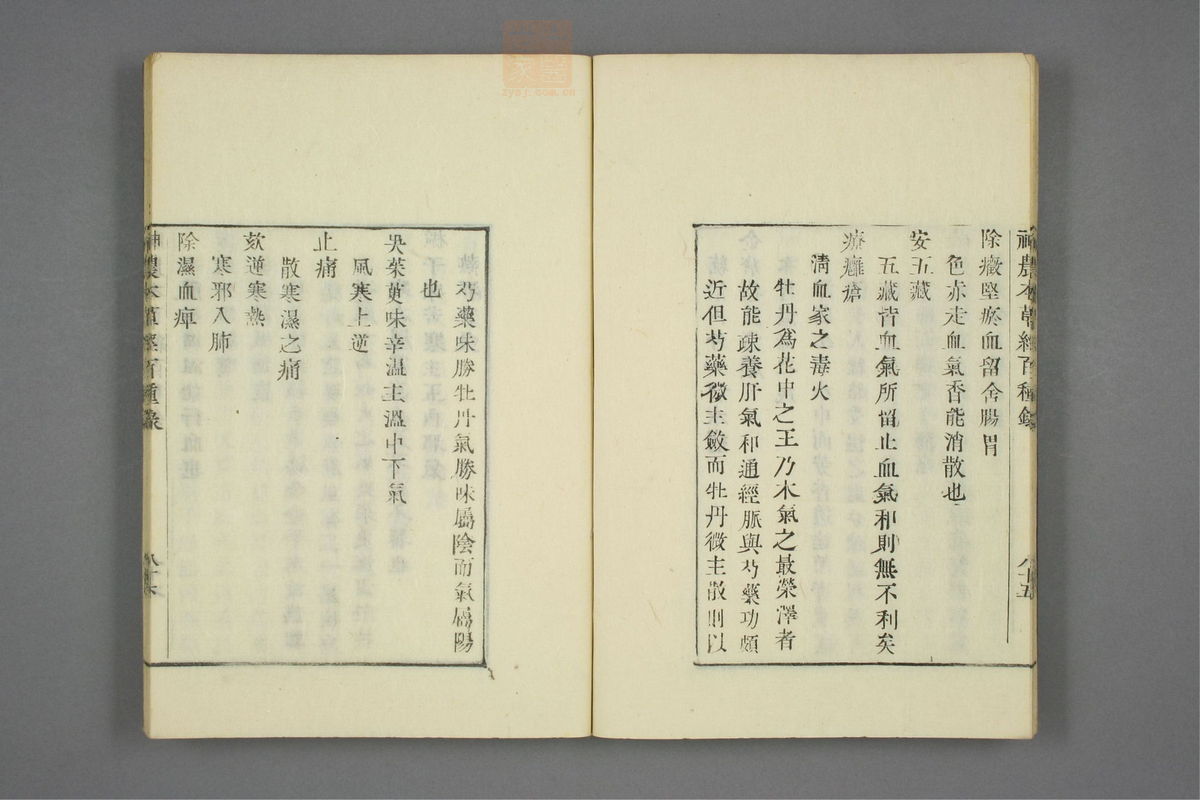 神農本草經百種錄
八十五
除癥堅瘀血留舍腸胃
色赤走血氣香能消散也
安五藏
五藏皆血氣所留止血氣和則無不利矣
療癰瘡
清血家之毒火
牡丹爲花中之王乃木氣之最榮澤者
故能疎養肝氣和通經脈與芍藥功頗
近但芍藥微主斂而牡丹微主散則以
芍藥味勝牡丹氣勝味屬陰而氣屬陽
也
吳茱萸味辛温主溫中下氣
風寒上逆
止痛
散寒濕之痛
欬逆寒熱
寒邪入肺
除濕血痺
神農本草經百種錄
八十六
zysj.com.cn